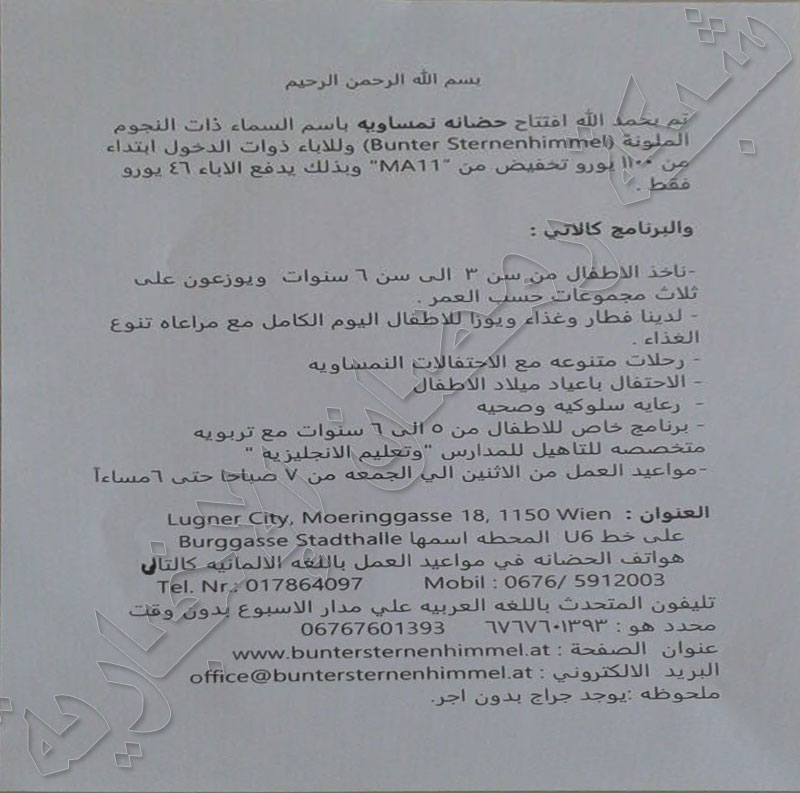 بسم الله الرحمن الرحيم
تم بحمد الله افتتاح حضانه نمساويه باسم السماء ذات النجوم
الملونة (Bunter Sternenhimmel) وللاباء ذوات الدخول ابتداء
من ١١٠٠ يورو تخفيض من "MA11" وبذلك يدفع الاباء ٤٦ يورو
فقط .
والبرنامج كالاتي :
-ناخذ الاطفال من سن ٣ الى سن ٦ سنوات ويوزعون على
ثلاث مجموعات حسب العمر .
- لدينا فطار وغذاء ويوزا للاطفال اليوم الكامل مع مراعاه تنوع
الغذاء .
- رحلات متنوعه مع الاحتفالات النمساويه
- الاحتفال باعياد ميلاد الاطفال
- رعايه سلوكيه وصحيه
- برنامج خاص للاطفال من ٥ الى ٦ سنوات مع تربويه
متخصصه للتاهيل للمدارس "وتعليم الانجليزيه "
-مواعيد العمل من الاثنين الي الجمعه من ٧ صباحا حتى ٦مساءاً
العنوان : Lugner City, Moeringgasse 18, 1150 Wien
على خط U6 المحطه اسمها Burggasse Stadthalle
هواتف الحضانه في مواعيد العمل باللغه الالمانيه كالتالي
Tel. Nr.: 017864097 Mobil : 0676/ 5912003
تليفون المتحدث باللغه العربيه علي مدار الاسبوع بدون وقت
محدد هو : ٦٧٦٧٦٠١٣٩٣ 06767601393
عنوان الصفحة : www.buntersternenhimmel.at
البريد الالكتروني : office@buntersternenhimmel.at
ملحوظه :يوجد جراج بدون اجر.
شبكة رمضان الإخبارية